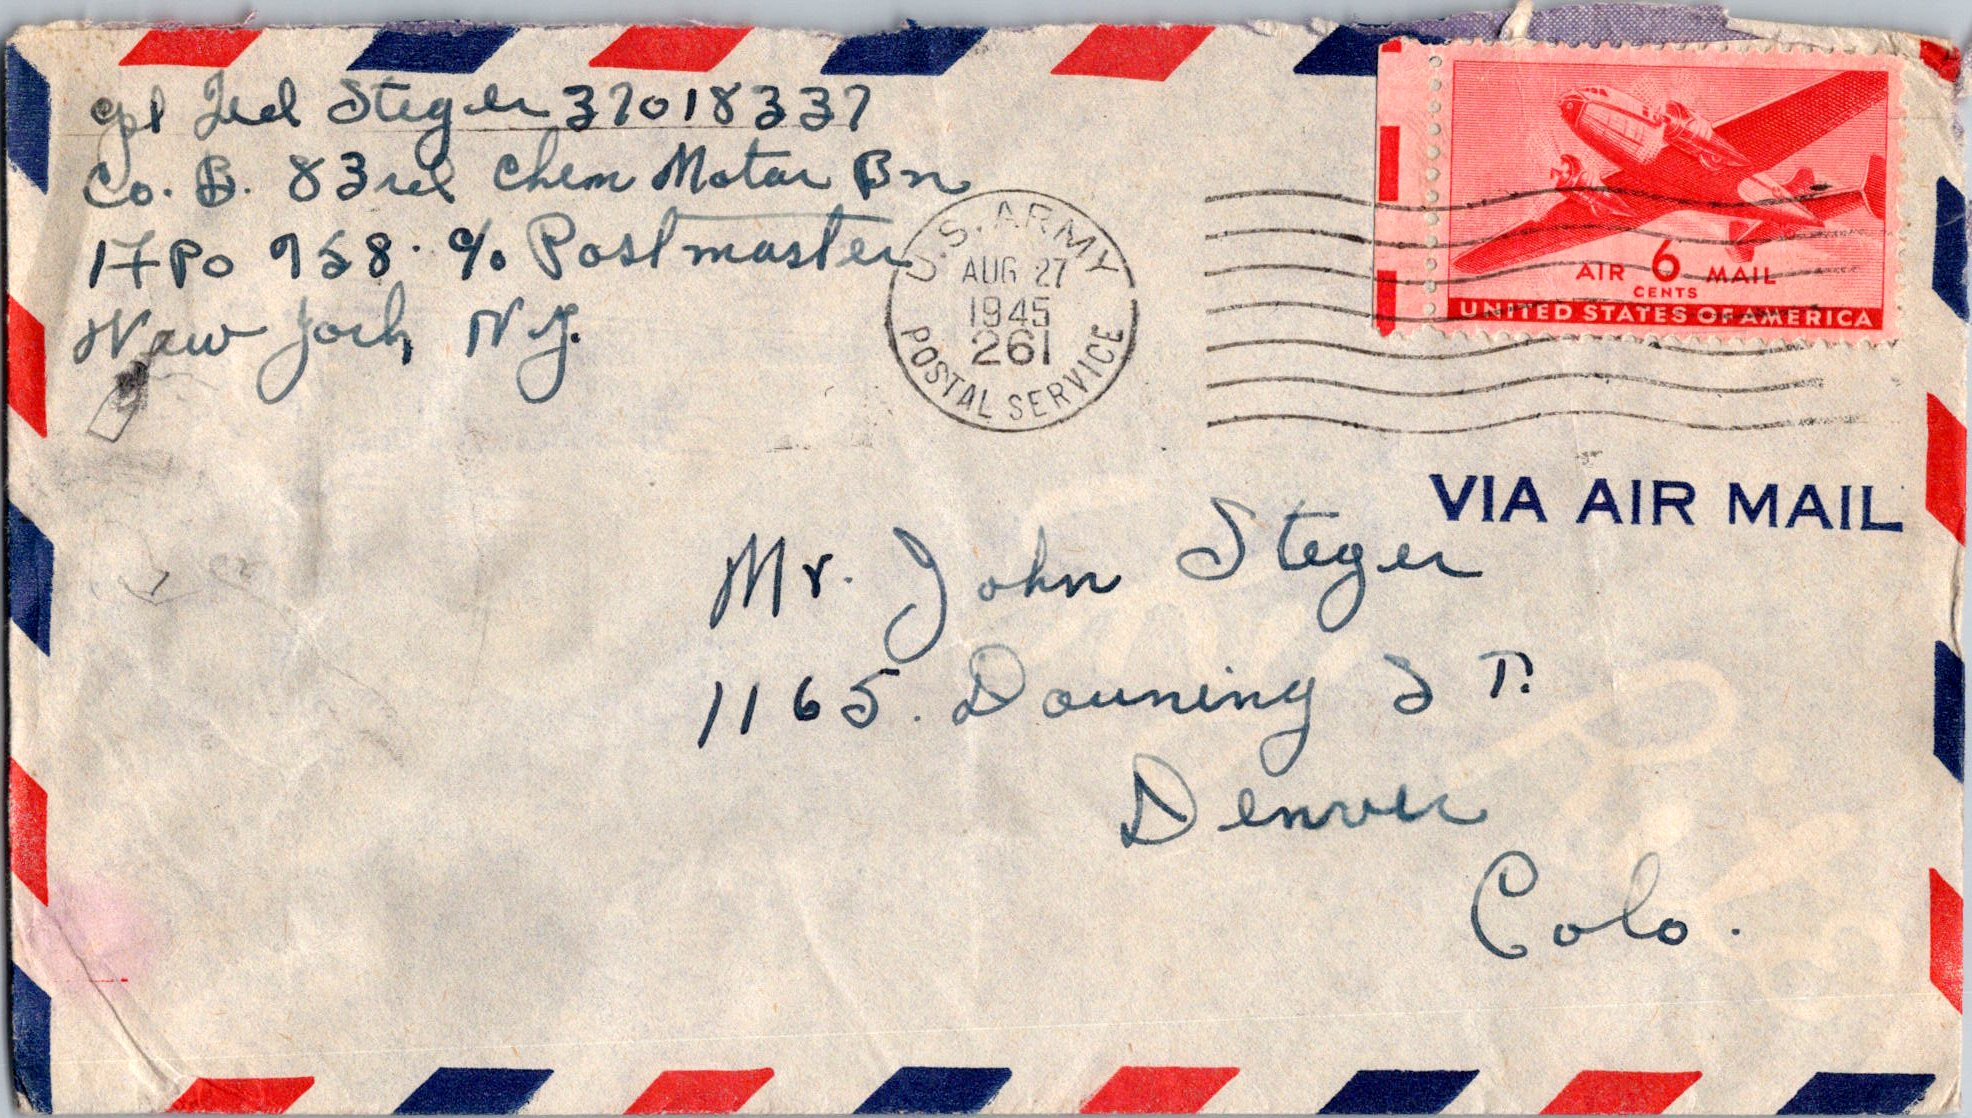 Cpl Ted Steger 37018337
Co. B. 83rd Chem Motar Bn
APO 758. c/o Postmaster
New York N.Y.
U.S. ARMY
AUG 27
1945
261
POSTAL SERVICE
AIR 6 MAIL
CENTS
UNITED STATES OF AMERICA
VIA AIR MAIL
Mr. John Steger
1165. Downing ST.
Denver
Colo.